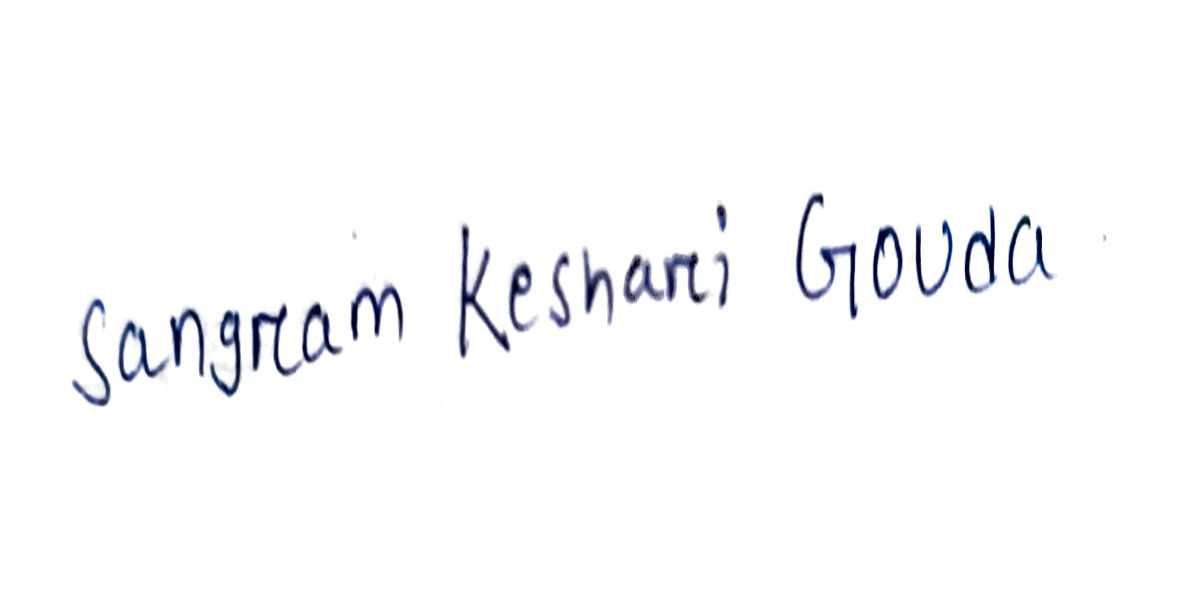 Sangram Keshari Gouda